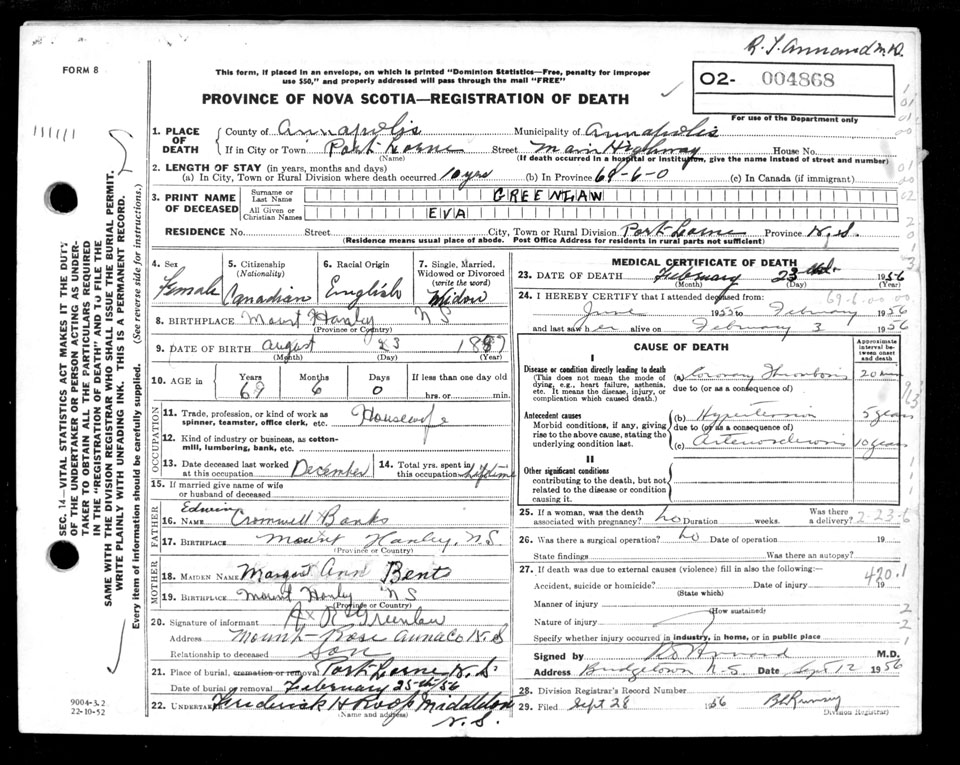 R. S. Annand M.D.
FORM 8
This form, if placed in an envelope, on which is printed "Dominion Statistics—Free, penalty for improper
use $50," and properly addressed will pass through the mail "FREE"
O2- 004868
For use of the Department only
PROVINCE OF NOVA SCOTIA—REGISTRATION OF DEATH
1. PLACE OF DEATH
County of Annapolis Municipality of Annapolis
If in City or Town Port Lorne Street Main Highway House No.
(Name) (If death occurred in a hospital or institution, give the name instead of street and number)
2. LENGTH OF STAY (in years, months and days)
(a) In City, Town or Rural Division where death occurred 10 yrs (b) In Province 69-6-0 (c) In Canada (if immigrant)
3. PRINT NAME OF DECEASED
Surname or Last Name GREENLAW
All Given or Christian Names EVA
RESIDENCE No. Street City, Town or Rural Division Port Lorne Province N.S.
(Residence means usual place of abode. Post Office Address for residents in rural parts not sufficient)
4. Sex Female
5. Citizenship (Nationality) Canadian
6. Racial Origin English
7. Single, Married, Widowed or Divorced (write the word) Widow
8. BIRTHPLACE Mount Hanley N S
(Province or Country)
9. DATE OF BIRTH August 23
(Month) (Day) (Year)
10. AGE in Years Months Days If less than one day old
69 6 0 hrs. or min.
OCCUPATION
11. Trade, profession, or kind of work as spinner, teamster, office clerk, etc. Housewife
12. Kind of industry or business, as cotton-mill, lumbering, bank, etc.
13. Date deceased last worked at this occupation December
14. Total yrs. spent in this occupation Lifetime
15. If married give name of wife or husband of deceased
FATHER
Edwin
16. NAME Cromwell Banks
17. BIRTHPLACE Mount Hanley, N.S.
(Province or Country)
MOTHER
18. MAIDEN NAME Margaret Ann Bent
19. BIRTHPLACE Mount Hanly N S
(Province or Country)
20. Signature of informant A R Greenlaw
Address Mount Rose Anna Co N.S
Relationship to deceased Son
21. Place of burial, cremation or removal Port Lorne N.S.
Date of burial or removal February 25th/56
22. UNDERTAKER Frederick H Roop Middleton
(Name and address) N.S.
MEDICAL CERTIFICATE OF DEATH
23. DATE OF DEATH February 23rd. 1956
(Month) (Day) (Year)
69-6-00-00
24. I HEREBY CERTIFY that I attended deceased from:
June 1955 to February 1956
and last saw her alive on February 3 1956
CAUSE OF DEATH
Approximate interval between onset and death
I
Disease or condition directly leading to death
(This does not mean the mode of dying, e.g., heart failure, asthenia, etc. It means the disease, injury, or complication which caused death.)
(a) Coronary Thrombosis 20 min
due to (or as a consequence of)
Antecedent causes
Morbid conditions, if any, giving rise to the above cause, stating the underlying condition last.
(b) Hypertension 5 years
due to (or as a consequence of)
(c) Arteriosclerosis 10 years
II
Other significant conditions
contributing to the death, but not related to the disease or condition causing it.
25. If a woman, was the death associated with pregnancy? No Duration weeks. Was there a delivery?
2-23-6
26. Was there a surgical operation? No Date of operation 19
State findings Was there an autopsy?
27. If death was due to external causes (violence) fill in also the following: 420.1
Accident, suicide or homicide? Date of injury 19
(State which)
Manner of injury
(How sustained)
Nature of injury
Specify whether injury occurred in industry, in home, or in public place
Signed by R S Annand M.D.
Address Bridgetown N-S Date Sept 12 1956
28. Division Registrar's Record Number
29. Filed Sept 28 1956
Division Registrar
SEC. 14—VITAL STATISTICS ACT MAKES IT THE DUTY
OF THE UNDERTAKER OR PERSON ACTING AS UNDER-
TAKER TO OBTAIN ALL THE PARTICULARS REQUIRED
IN THE "REGISTRATION OF DEATH" AND TO FILE THE
SAME WITH THE DIVISION REGISTRAR WHO SHALL ISSUE THE BURIAL PERMIT.
WRITE PLAINLY WITH UNFADING INK. THIS IS A PERMANENT RECORD.
Every item of information should be carefully supplied. (See reverse side for instructions.)
9004-3.2
22-10-52